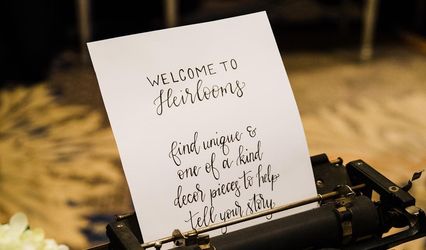 WELCOME TO
Heirlooms
find unique &
one of a kind
decor pieces to help
tell your story.